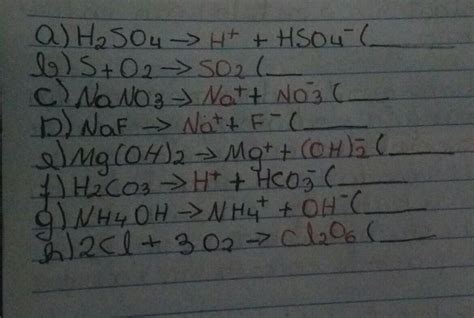 a) H₂SO₄ → H⁺ + HSO₄⁻ (____
b) S + O₂ → SO₂ (____
c) NaNO₃ → Na⁺ + NO₃⁻ (____
D) NaF → Na⁺ + F⁻ (____
e) Mg(OH)₂ → Mg⁺ + (OH)₂⁻ (____
f) H₂CO₃ → H⁺ + HCO₃⁻ (____
g) NH₄OH → NH₄⁺ + OH⁻ (____
h) 2Cl + 3O₂ → Cl₂O₆ (____